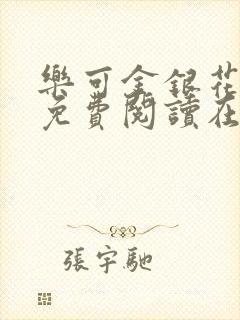 樂可金銀花
免費閱讀在
張宇馳